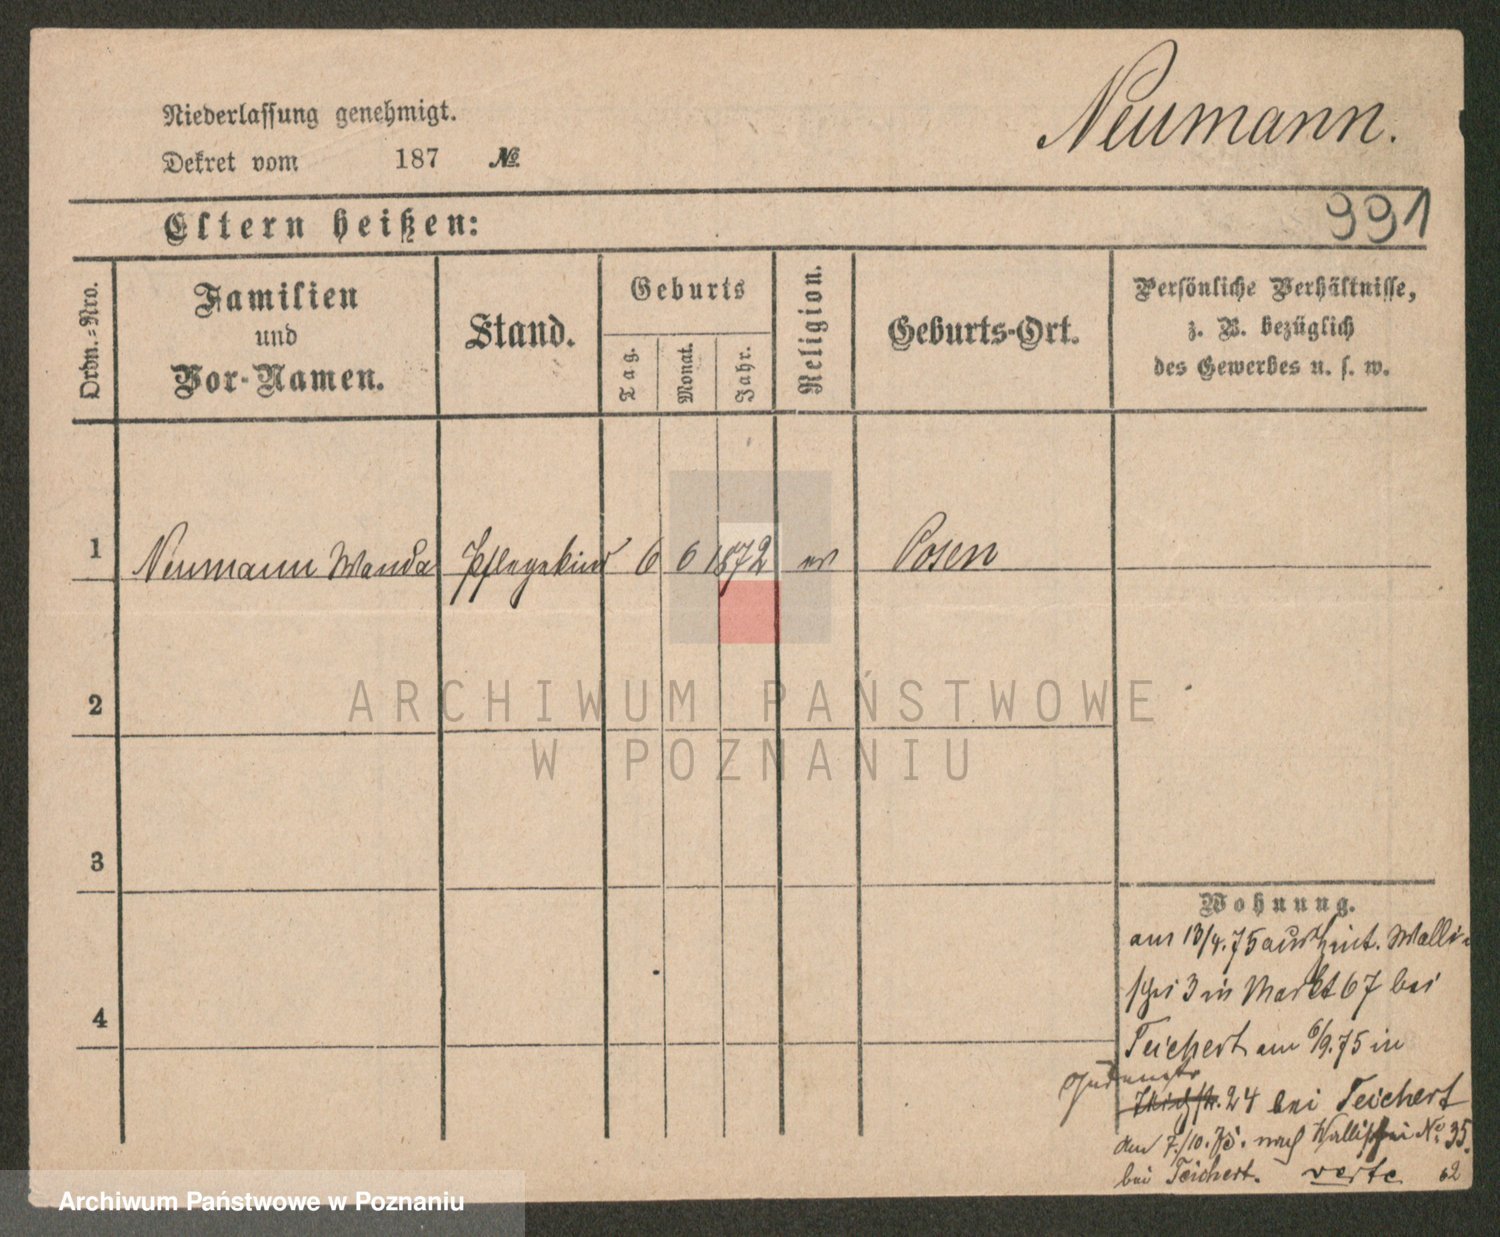 Niederlassung genehmigt.
Dekret vom 187 №
Neumann.
991
Eltern heißen:
Ordn.-Nro.
Familien
und
Vor-Namen.
Stand.
Geburts
Tag.
Monat.
Jahr.
Religion.
Geburts-Ort.
Persönliche Verhältnisse,
z. B. bezüglich
des Gewerbes u. s. w.
1 Neumann Wanda Pflegekind 6 6 1872 ev Posen
2
3
4
Wohnung.
am 13/4.75 aus Hint. Walli-
schei 3 in Markt 67 bei
Teichert am 6/9.75 in
Judenstr
24 bei Teichert
Am 7./10.75. nach Wallischei No 35.
bei Teichert. verte
ARCHIWUM PAŃSTWOWE
W POZNANIU
Archiwum Państwowe w Poznaniu